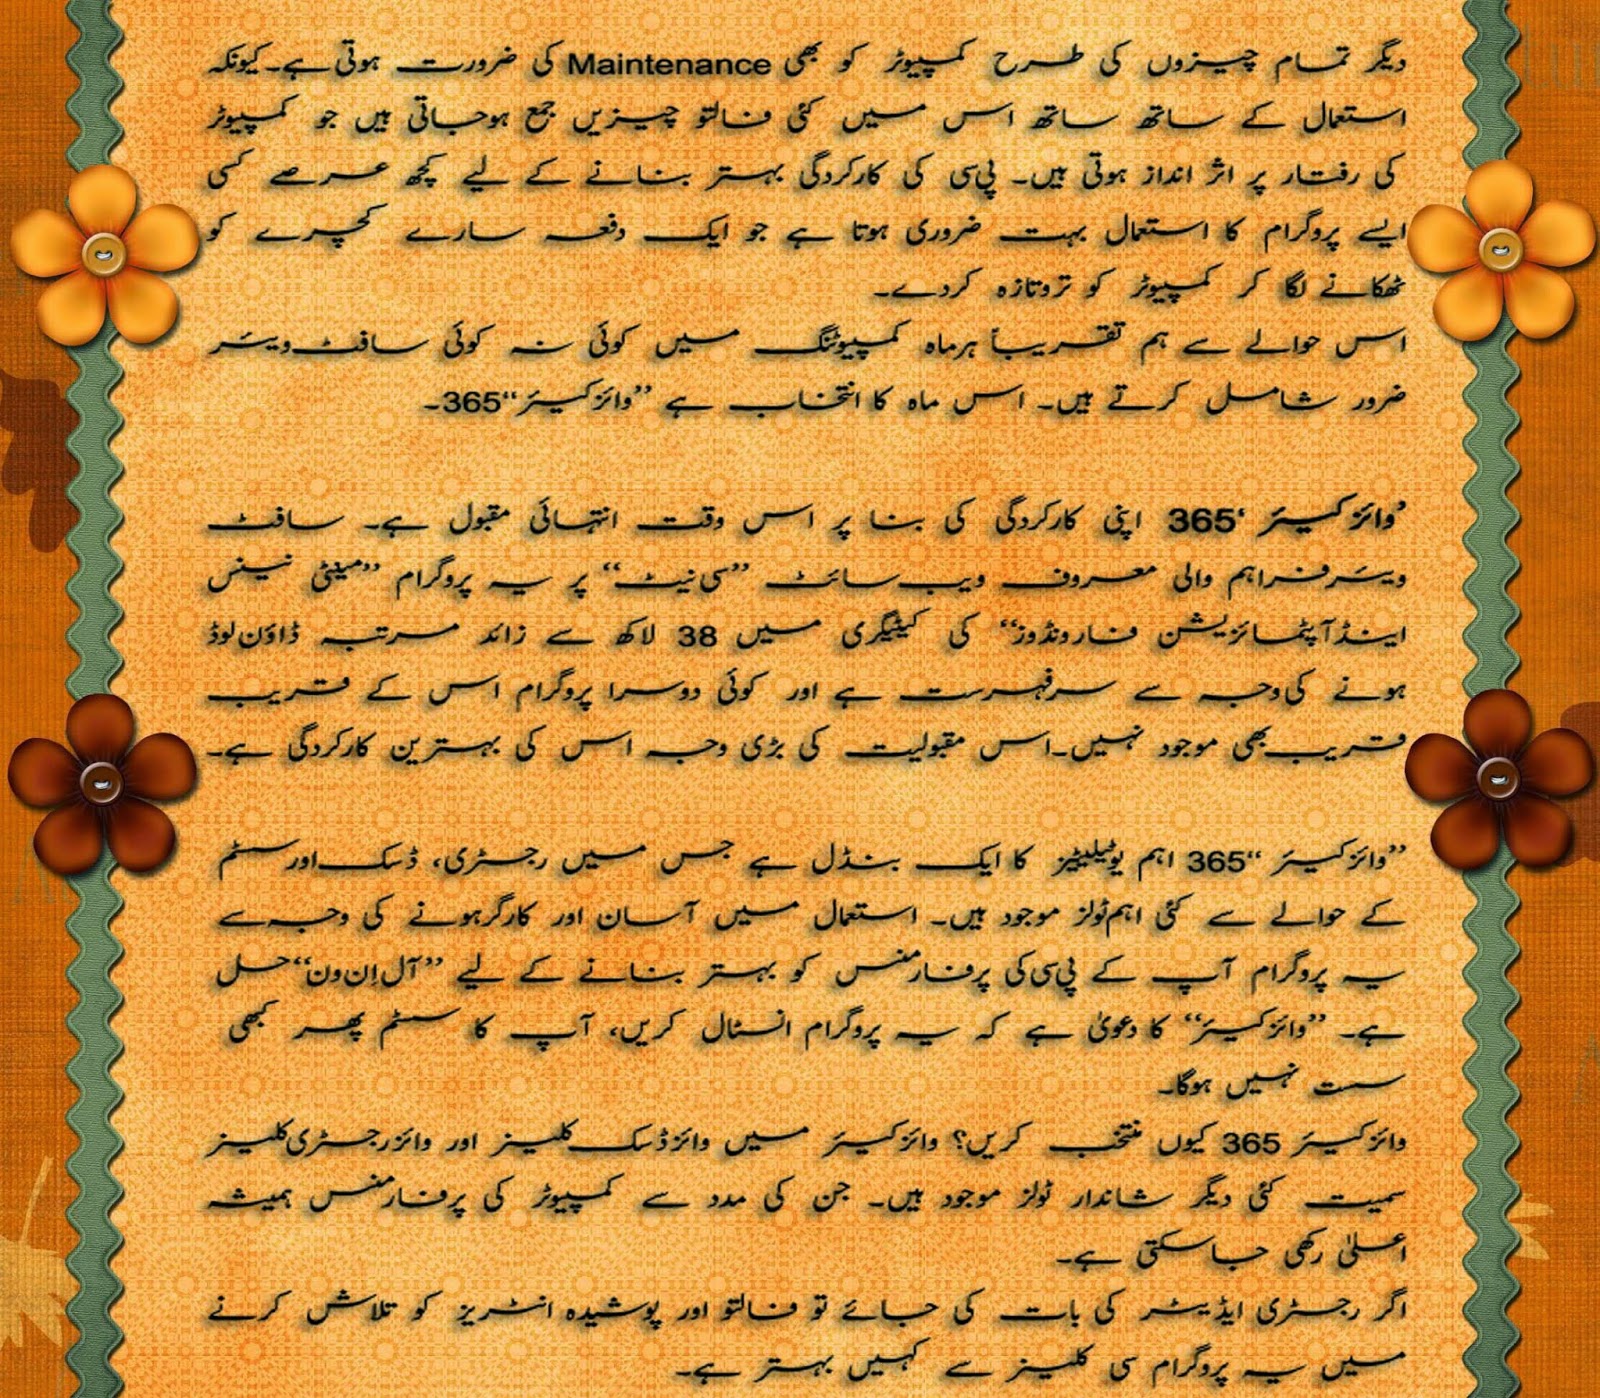 دیگر تمام چیزوں کی طرح کمپیوٹر کو بھی Maintenance کی ضرورت ہوتی ہے۔کیونکہ
استعمال کے ساتھ ساتھ اس میں کئی فالتو چیزیں جمع ہوجاتی ہیں جو کمپیوٹر
کی رفتار پر اثر انداز ہوتی ہیں۔ پی سی کی کارکردگی بہتر بنانے کے لیے کچھ عرصے کسی
ایسے پروگرام کا استعمال بہت ضروری ہوتا ہے جو ایک دفعہ سارے کچرے کو
ٹھکانے لگا کر کمپیوٹر کو تروتازہ کردے۔
اس حوالے سے ہم تقریباً ہرماہ کمپیوٹنگ میں کوئی نہ کوئی سافٹ ویئر
ضرور شامل کرتے ہیں۔ اس ماہ کا انتخاب ہے ’’وائز کیئر‘‘365۔
’وائز کیئر ‘365 اپنی کارکردگی کی بنا پر اس وقت انتہائی مقبول ہے۔ سافٹ
ویئرفراہم والی معروف ویب سائٹ ’’سی نیٹ‘‘ پر یہ پروگرام ’’مینٹی نینس
اینڈ آپٹمائزیشن فار ونڈوز‘‘ کی کیٹیگری میں 38 لاکھ سے زائد مرتبہ ڈاؤن لوڈ
ہونے کی وجہ سے سرفہرست ہے اور کوئی دوسرا پروگرام اس کے قریب
قریب بھی موجود نہیں۔اس مقبولیت کی بڑی وجہ اس کی بہترین کارکردگی ہے۔
’’وائز کیئر ‘‘365 اہم یوٹیلیٹیز کا ایک بنڈل ہے جس میں رجسٹری، ڈسک اور سسٹم
کے حوالے سے کئی اہم ٹولز موجود ہیں۔ استعمال میں آسان اور کارگر ہونے کی وجہ سے
یہ پروگرام آپ کے پی سی کی پرفارمنس کو بہتر بنانے کے لیے ’’آل اِن ون‘‘حل
ہے۔ ’’وائز کیئر‘‘ کا دعویٰ ہے کہ یہ پروگرام انسٹال کریں، آپ کا سسٹم پھر کبھی
سست نہیں ہوگا۔
وائز کیئر 365 کیوں منتخب کریں؟ وائز کیئر میں وائز ڈسک کلینر اور وائز رجسٹری کلینر
سمیت کئی دیگر شاندار ٹولز موجود ہیں۔ جن کی مدد سے کمپیوٹر کی پرفارمنس ہمیشہ
اعلیٰ رکھی جاسکتی ہے۔
اگر رجسٹری ایڈیٹر کی بات کی جائے تو فالتو اور پوشیدہ انٹریز کو تلاش کرنے
میں یہ پروگرام سی کلینر سے کہیں بہتر ہے۔